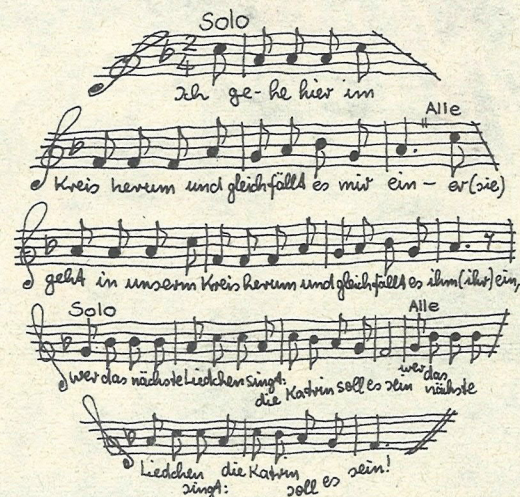 Solo
2
4
Ich ge-he hier im
Alle
Kreis herum und gleich fällt es mir ein - er (sie)
geht in unserm Kreis herum und gleich fällt es ihm (ihr) ein,
Solo
Alle
wer das nächste Liedchen singt: die Katrin soll es sein wer das nächste
Liedchen singt: die Katrin soll es sein!